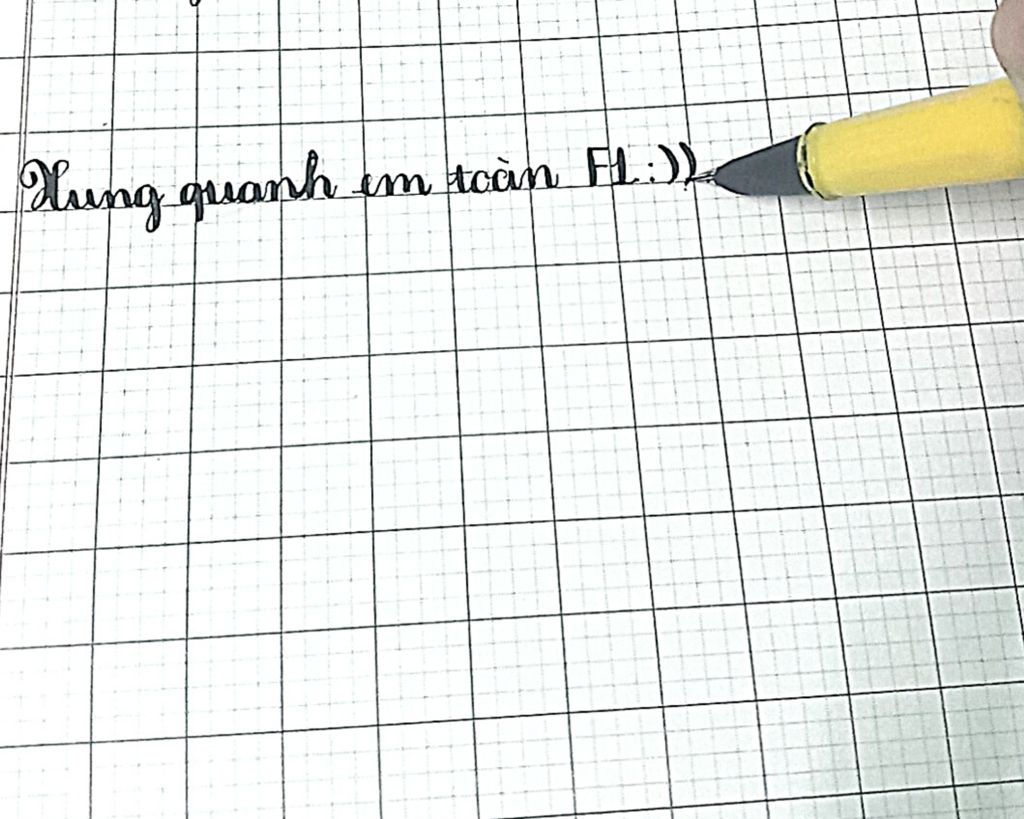 Xung quanh em toàn F1 :))